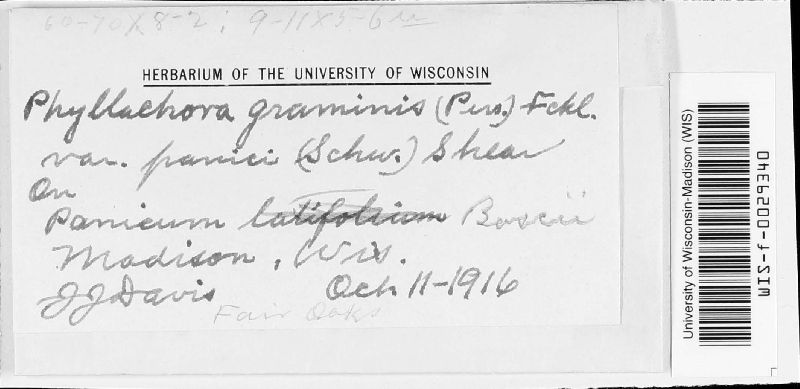 60-70 X 8-2 ; 9-11 X 5-6
HERBARIUM OF THE UNIVERSITY OF WISCONSIN
Phyllachora graminis (Pers.) Fckl.
var. panici (Schw.) Shear
On
Panicum latifolium Boscii
Madison, Wis.
JJ Davis Oct 11-1916
Fair Oaks
University of Wisconsin-Madison (WIS)
WIS-f-0029340